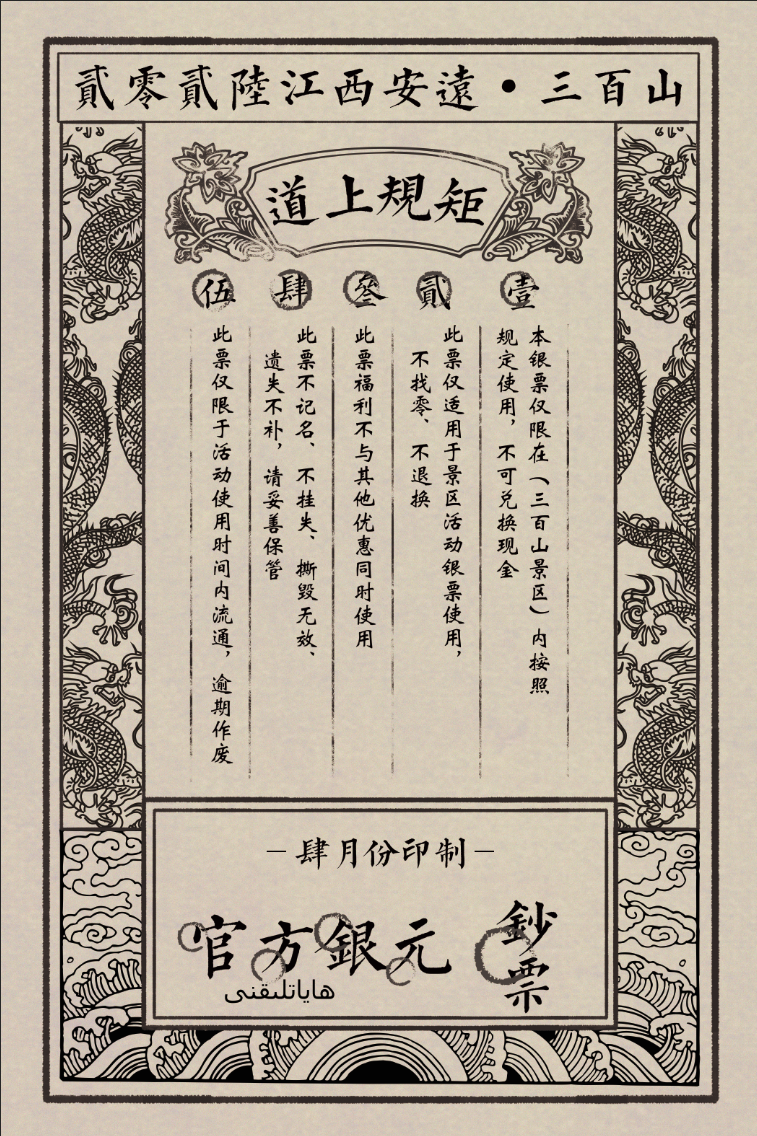 貳零貳陸江西安遠•三百山
道上規矩
壹
本银票仅限在（三百山景区）内按照
规定使用，不可兑换现金
貳
此票仅适用于景区活动银票使用，
不找零、不退换
叄
此票福利不与其他优惠同时使用
肆
此票不记名、不挂失、撕毁无效、
遗失不补，请妥善保管
伍
此票仅限于活动使用时间内流通，逾期作废
－肆月份印制－
官方銀元
鈔票
هاياتلىقنى